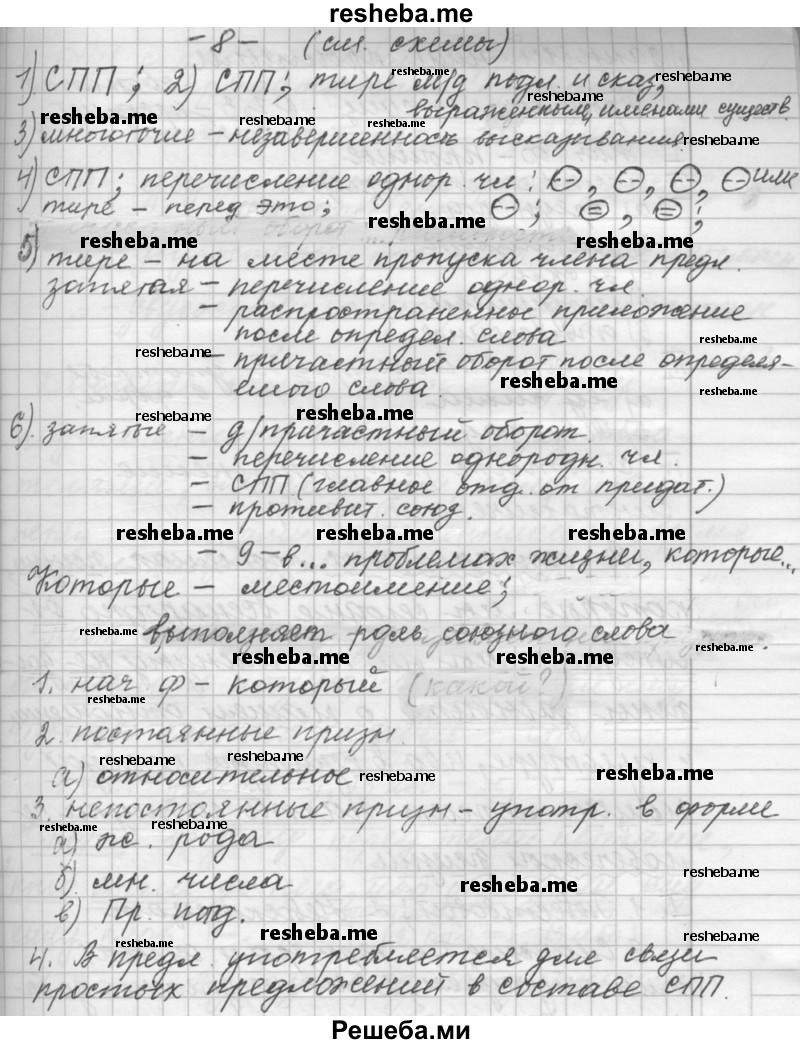 resheba.me
- 8 - (см. схемы)
1) СПП; 2) СПП; тире м/д подл. и сказ,
выраженными именами существ.
3) многоточие – незавершенность высказывания.
4) СПП; перечисление однор. чл:
тире – перед это;
5) тире – на месте пропуска члена предл.
запятая – перечисление однор. чл.
– распространенное приложение
после определ. слова
– причастный оборот после определя-
емого слова.
6). запятые – д/причастный оборот.
– перечисление однородн. чл.
– СПП (главное отд. от придат.)
– противит. союз.
– 9 – в... проблемах жизни, которые...
Которые – местоимение;
выполняет роль союзного слова
1. нач ф – который (какой?)
2. постоянные призн.
а) относительное
3. непостоянные призн – употр. в форме
а) ж. рода
б) мн. числа
в) Пр. пад.
4. В предл. употребляется для связи
простых предложений в составе СПП.
Решеба.ми